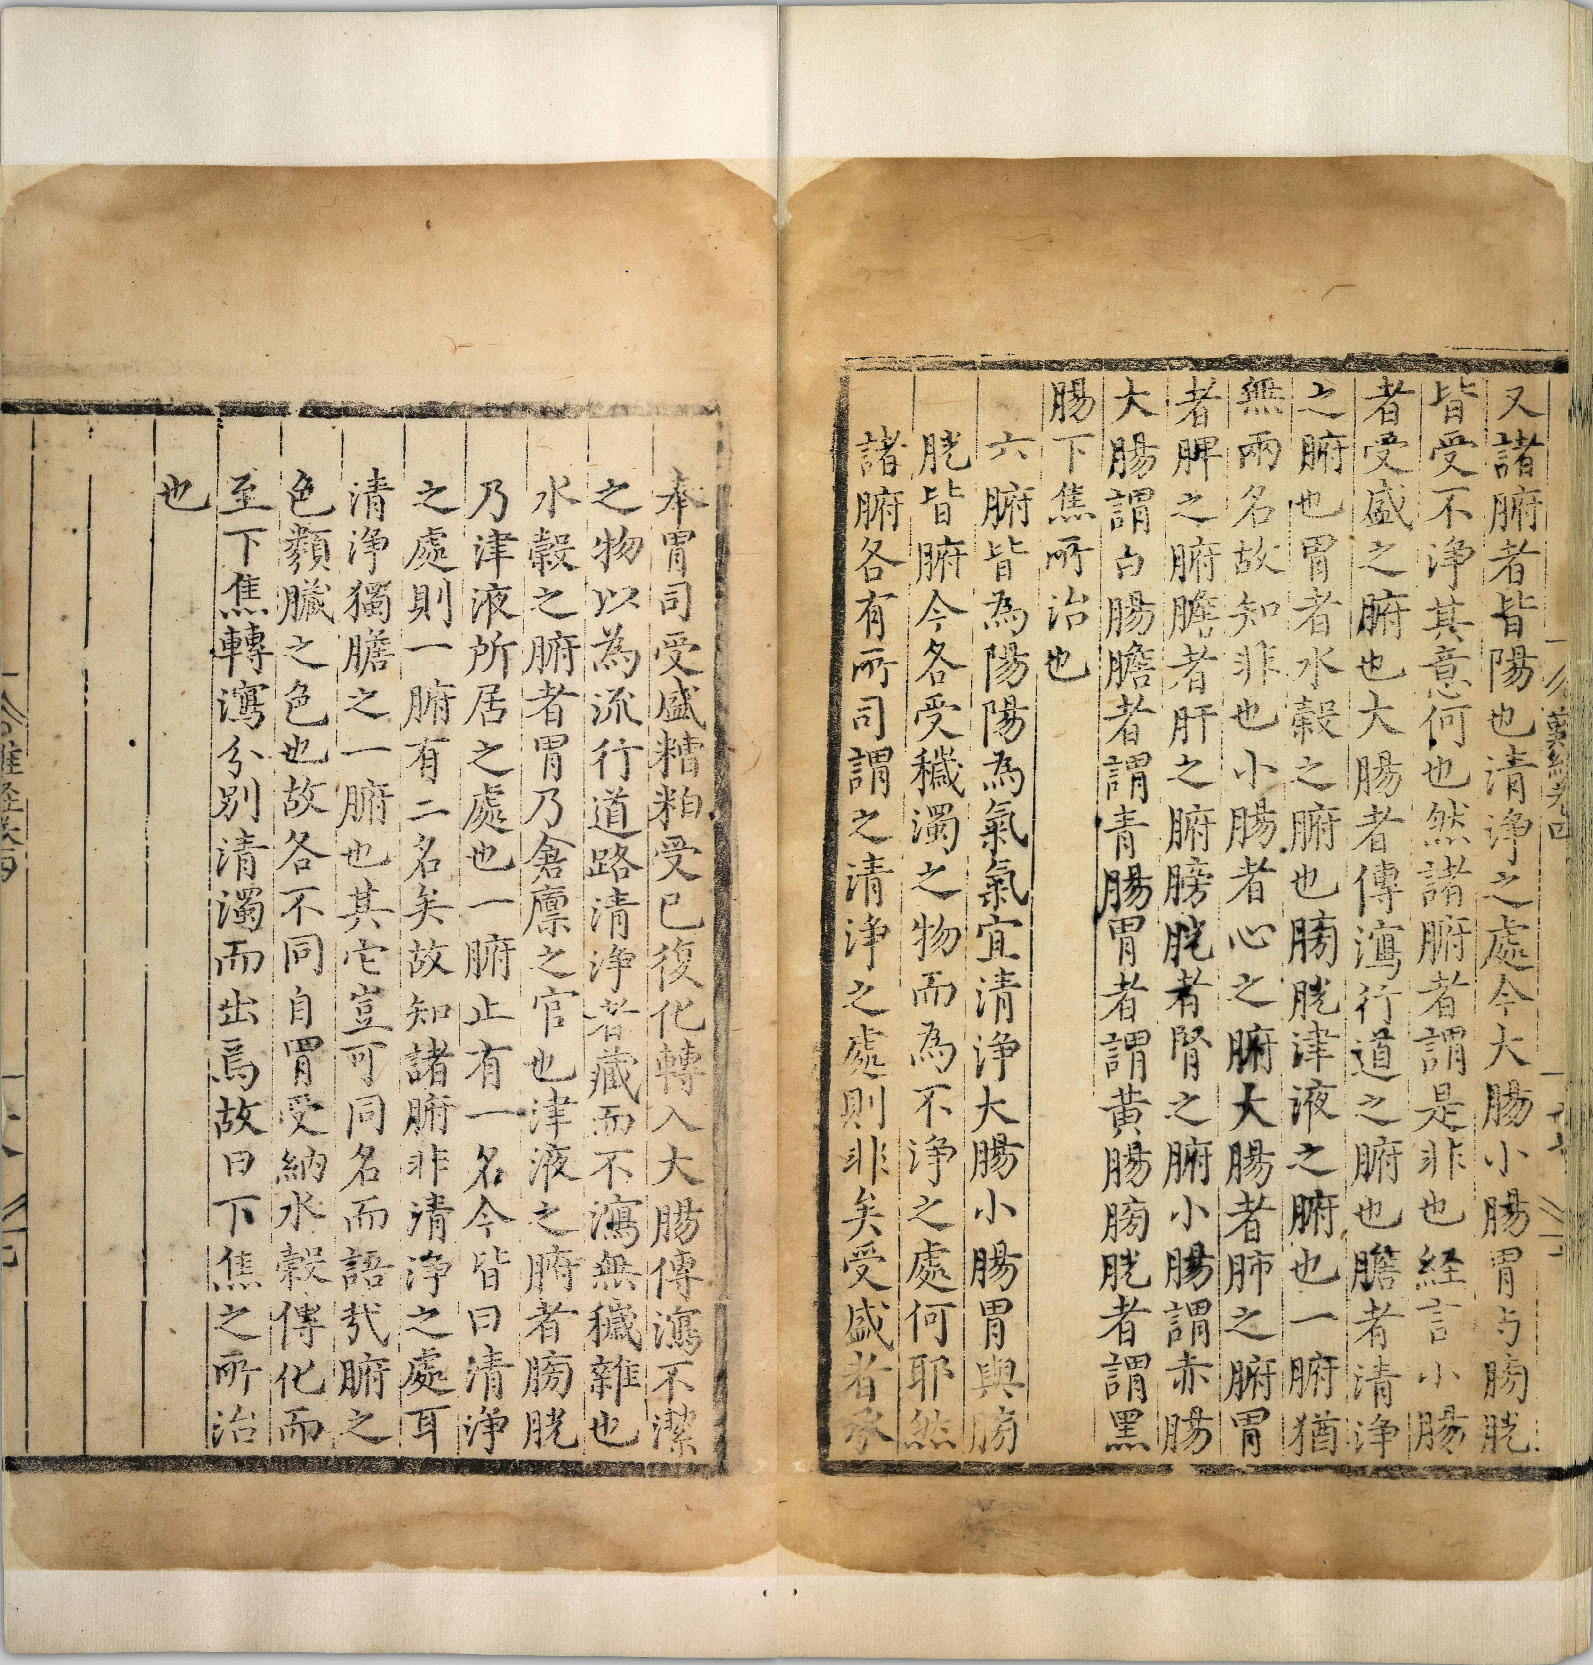 又諸腑者皆陽也清浄之處今大腸小腸胃与膀胱
皆受不浄其意何也然諸腑者謂是非也経言小腸
者受盛之腑也大腸者傳瀉行道之腑也膽者清浄
之腑也胃者水穀之腑也膀胱津液之腑也一腑猶
無兩名故知非也小腸者心之腑大腸者肺之腑胃
者脾之腑膽者肝之腑膀胱者腎之腑小腸謂赤腸
大腸謂白腸膽者謂青腸胃者謂黄腸膀胱者謂黑
腸下焦所治也
六腑皆為陽陽為氣氣宜清浄大腸小腸胃與膀
胱皆腑今各受穢濁之物而為不浄之處何耶然
諸腑各有所司謂之清浄之處則非矣受盛者承
奉胃司受盛糟粕受已復化轉入大腸傳瀉不潔
之物以為流行道路清浄者藏而不瀉無穢雜也
水穀之腑者胃乃倉廩之官也津液之腑者膀胱
乃津液所居之處也一腑止有一名今皆曰清浄
之處則一腑有二名矣故知諸腑非清浄之處耳
清浄獨膽之一腑也其它豈可同名而語㢤腑之
色纇臓之色也故各不同自胃受納水穀傳化而
至下焦轉瀉分别清濁而出焉故曰下焦之所治
也